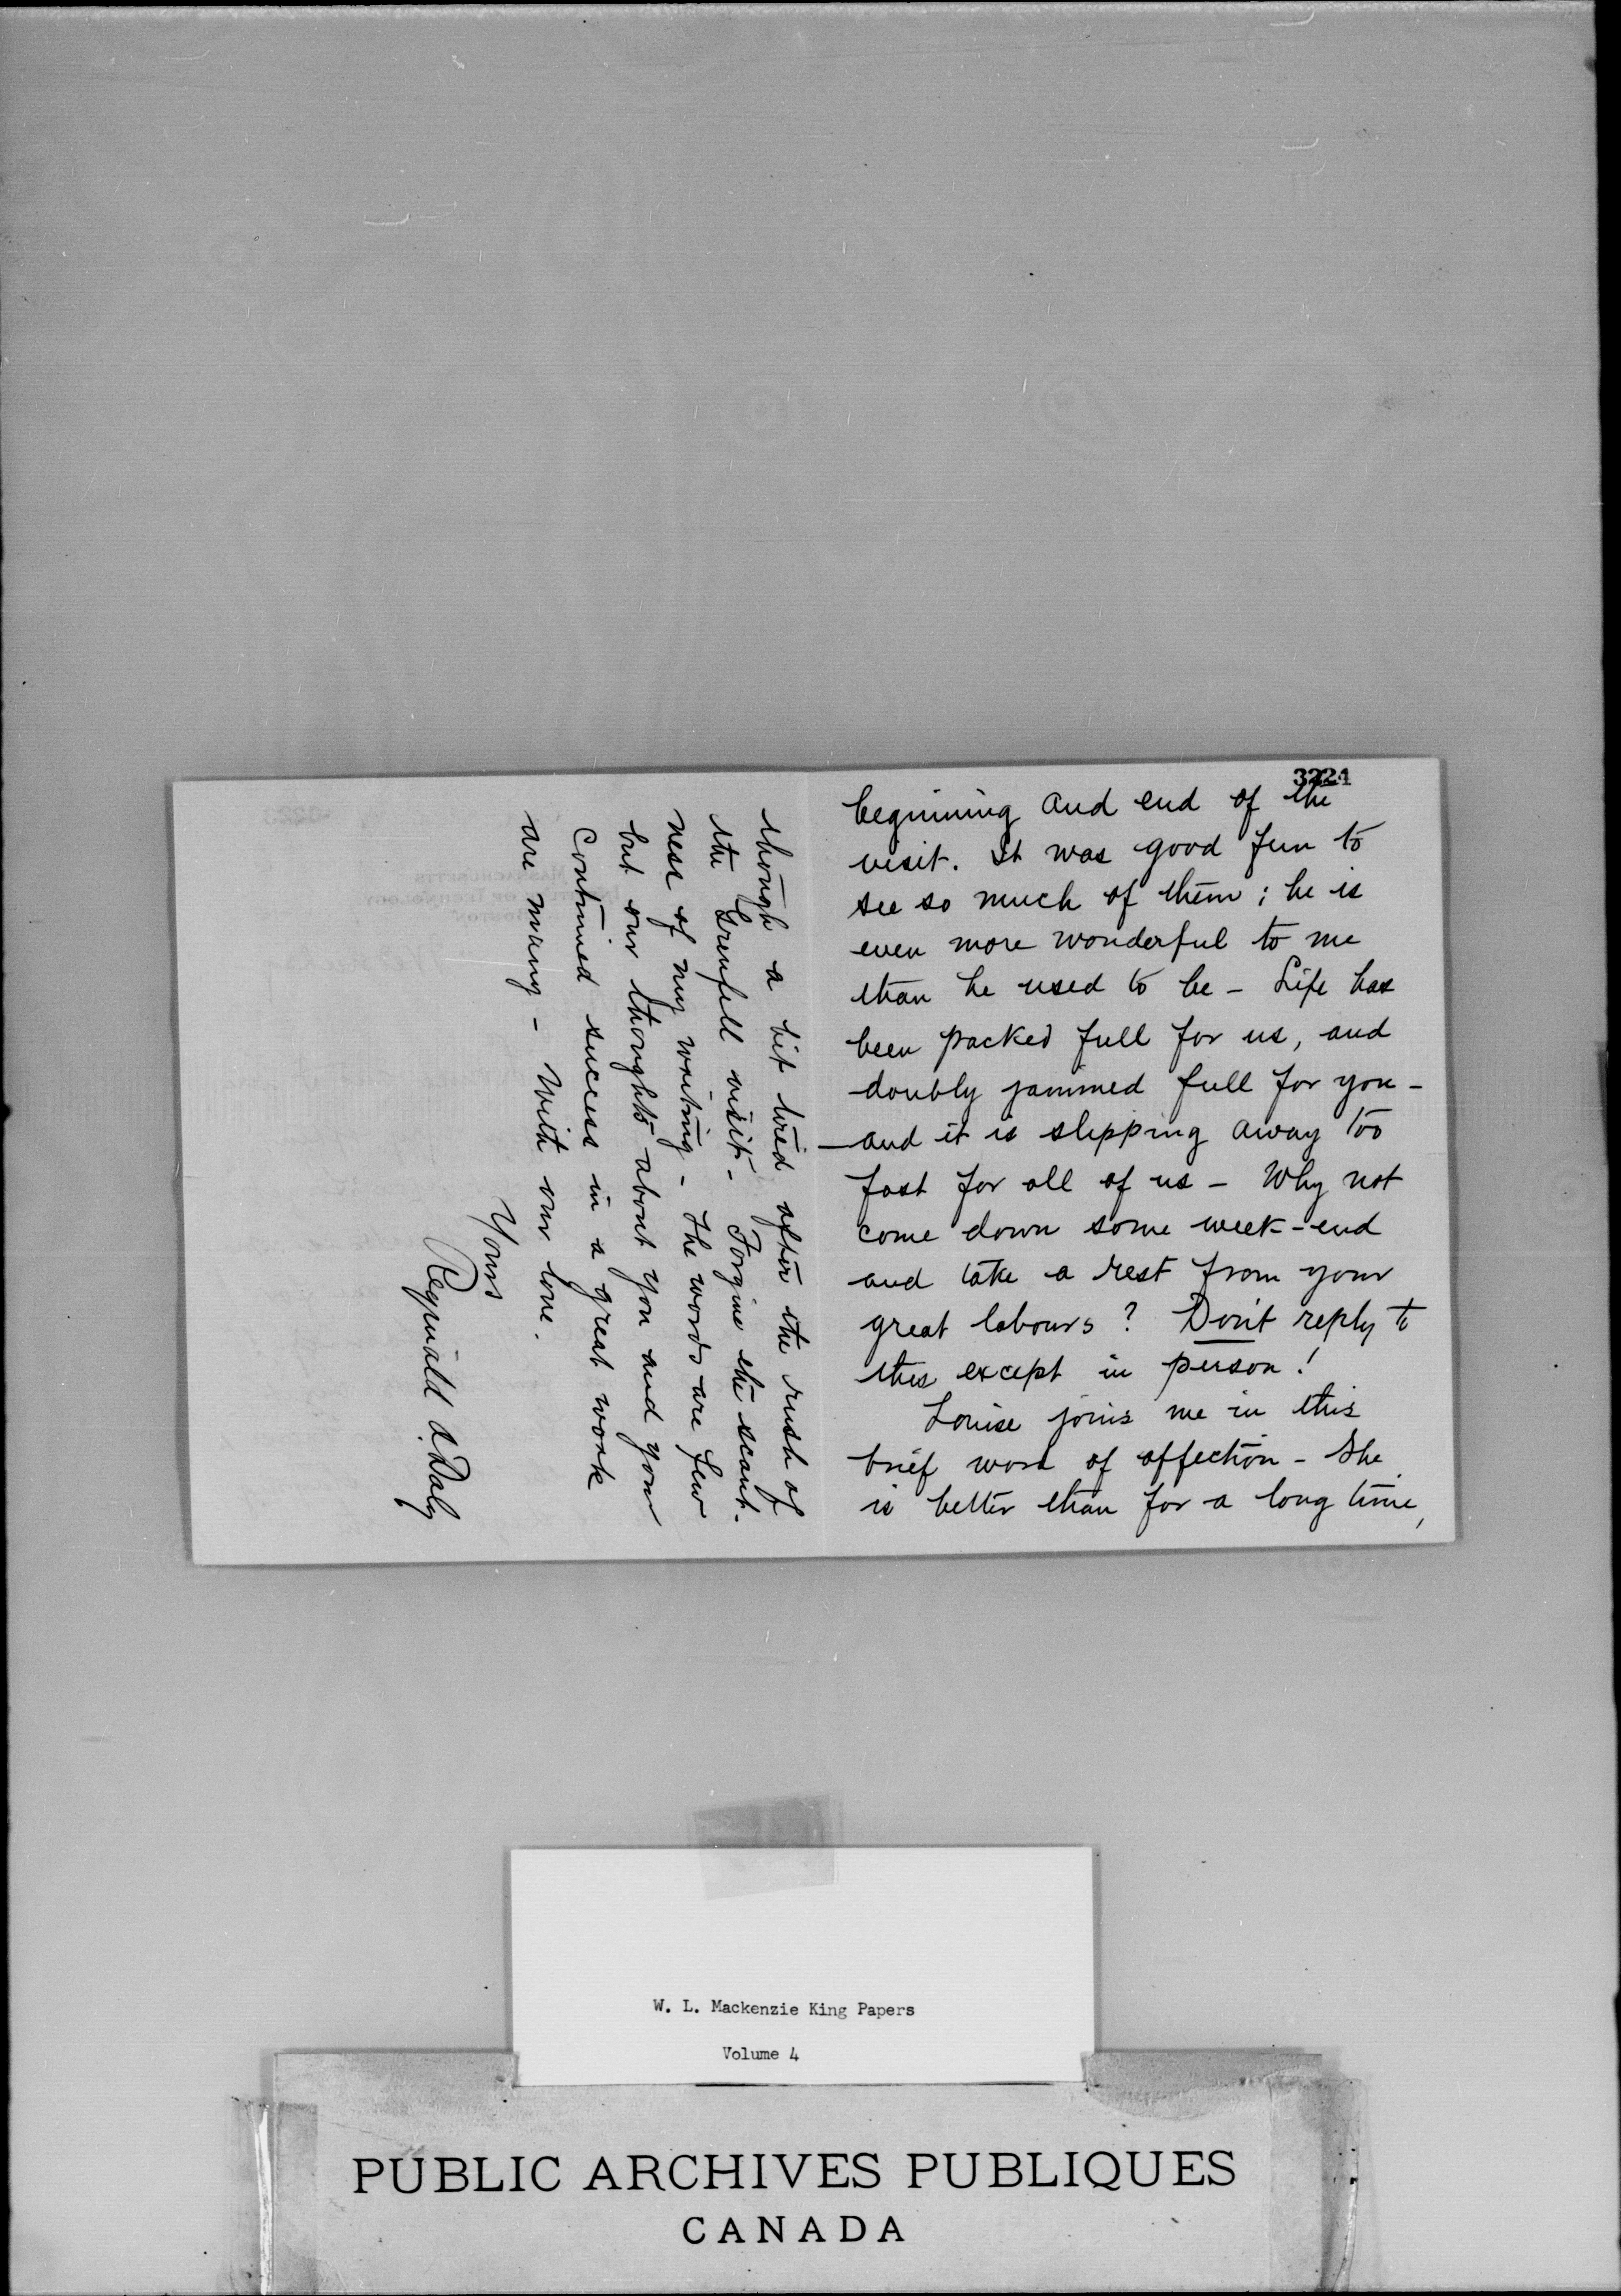 3224
beginning and end of the
visit. It was good fun to
see so much of them; he is
even more wonderful to me
than he used to be - Life has
been packed full for us, and
doubly jammed full for you -
- and it is slipping away too
fast for all of us - Why not
come down some week-end
and take a rest from your
great labours? Don't reply to
this except in person!
Louise joins me in this
brief word of affection - She
is better than for a long time,
though a bit tired after the rush of
the Grenfell visit - Forgive the scant-
ness of my writing - The words are few
but our thoughts about you and your
continued success in a great work
are many - With our love.
Yours
Reginald A. Daly
W. L. Mackenzie King Papers
Volume 4
PUBLIC ARCHIVES PUBLIQUES
CANADA